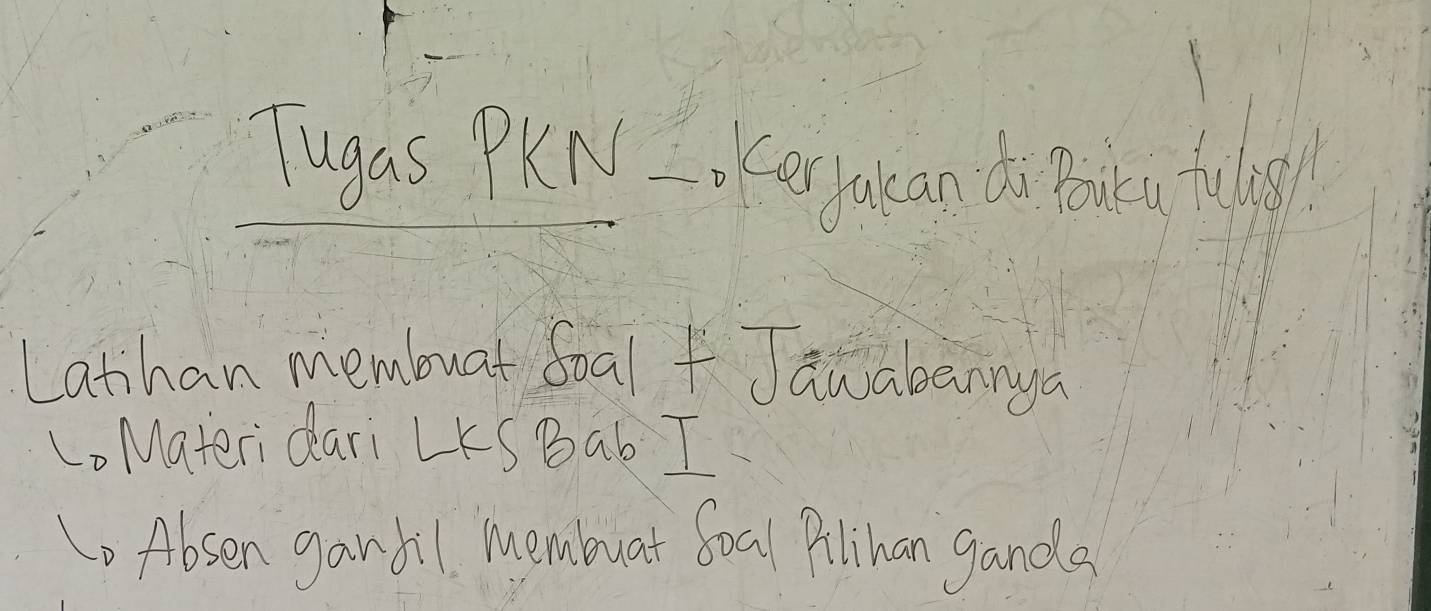 Tugas PKN → Kerjakan di Buku tulis!!
Latihan membuat Soal + Jawabannya
↳ Materi dari LKS Bab I
↳ Absen ganjil membuat Soal Pilihan ganda